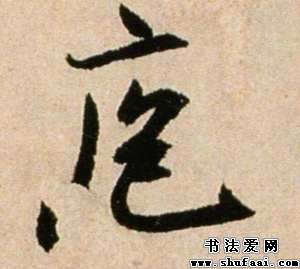 庖
书法爱网
www.shufaai.com